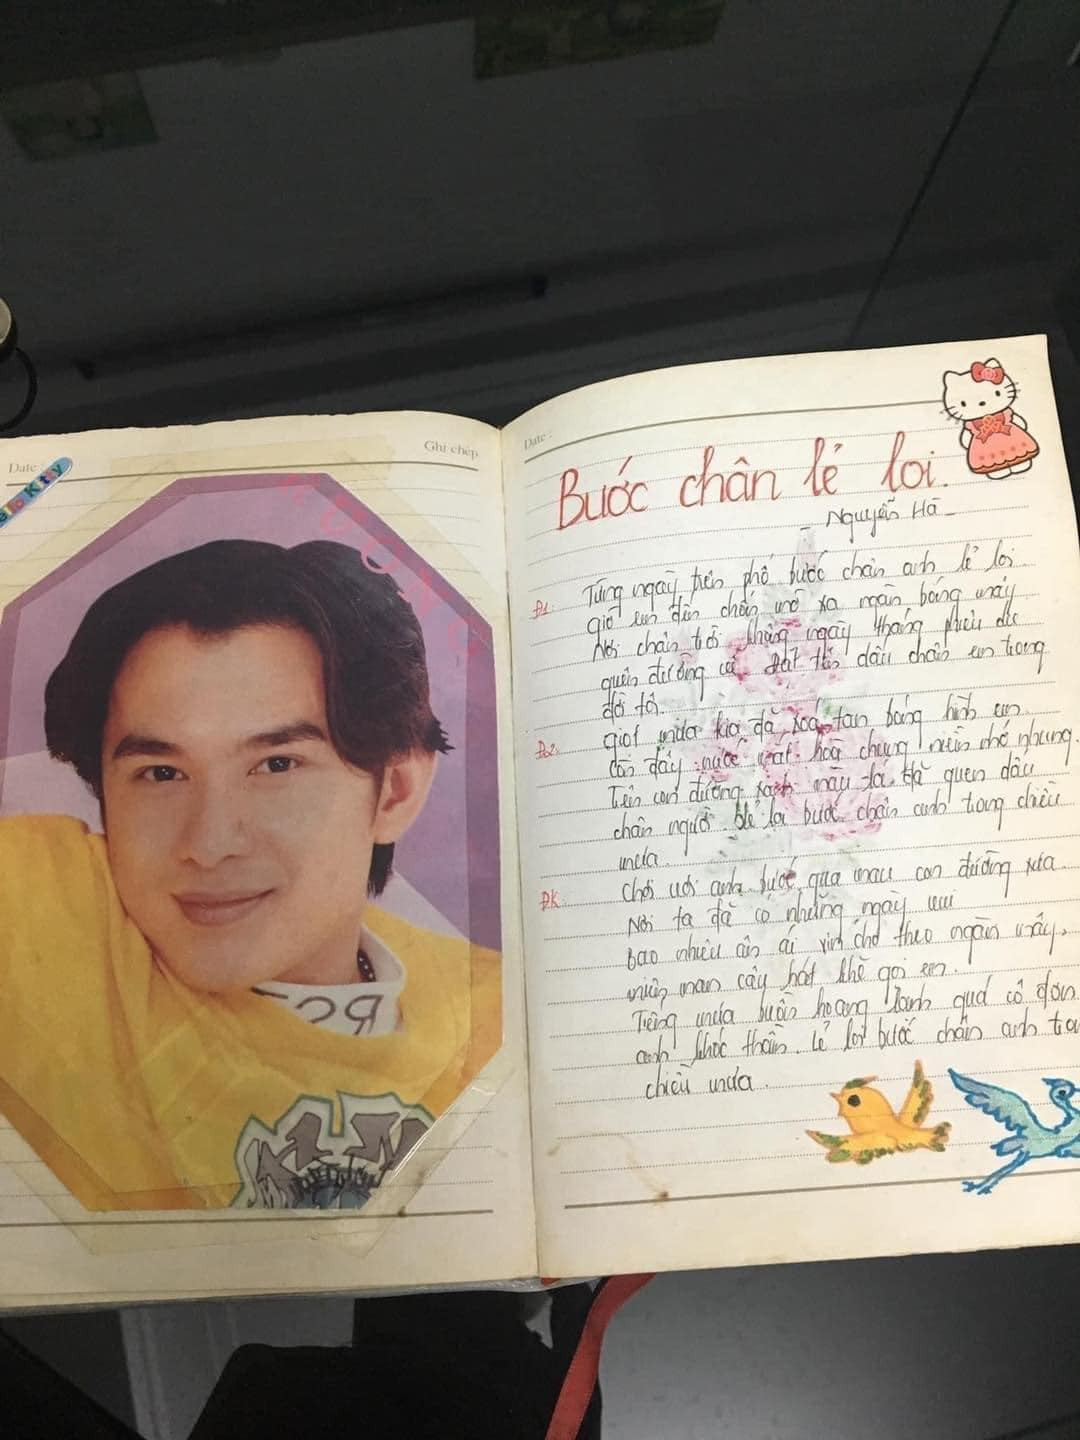 Date :
Ghi chép
Hello Kitty
Date :
Bước chân lẻ loi.
_ Nguyễn Hà _
Đ1: Từng ngày trên phố bước chân anh lẻ loi
giờ em đến chốn mô xa ngàn bóng mây
Nơi chân trời tháng ngày phiêu
quên đường về dấu chân em trong
đời tôi.
Đ2: giọt mưa kia đã xoá tan bóng hình em
còn đây nước mắt hoà chung niềm nhớ nhung.
Trên con đường xanh màu lá đã quen dấu
chân người lẻ loi bước chân anh trong chiều
mưa.
ĐK: Chơi vơi anh bước qua mau con đường xưa
Nơi ta đã có những ngày vui
bao nhiêu ân ái xin cho theo ngàn mây,
miên man cây hát khẽ gọi em.
Tiếng mưa buồn hoang lạnh quá cô đơn
anh khóc thầm. lẻ loi bước chân anh tro
chiều mưa.